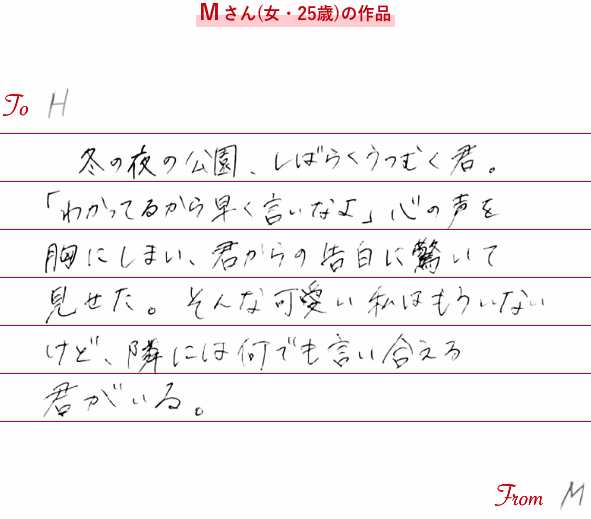 Mさん(女・25歳)の作品
To H
冬の夜の公園、しばらくうつむく君。
「わかってるから早く言いなよ」心の声を
胸にしまい、君からの告白に驚いて
見せた。そんな可愛い私はもういない
けど、隣には何でも言い合える
君がいる。
From M